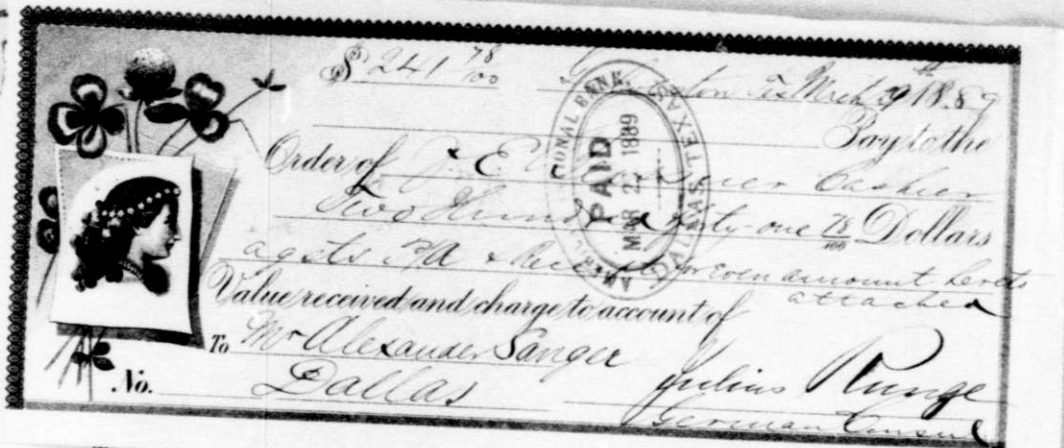 $ 241 78/100 Tx Mch 19th 1889
Pay to the
Order of J. E. Cashier
Two Hundred forty-one 78/100 Dollars
agsts R/A & for even amount hereto
attached
Value received and charge to account of
To Mr Alexander Sanger
No. Dallas
Julius Runge
German Consul
NATIONAL BANK
PAID
MAR 2 1889
DALLAS, TEXAS